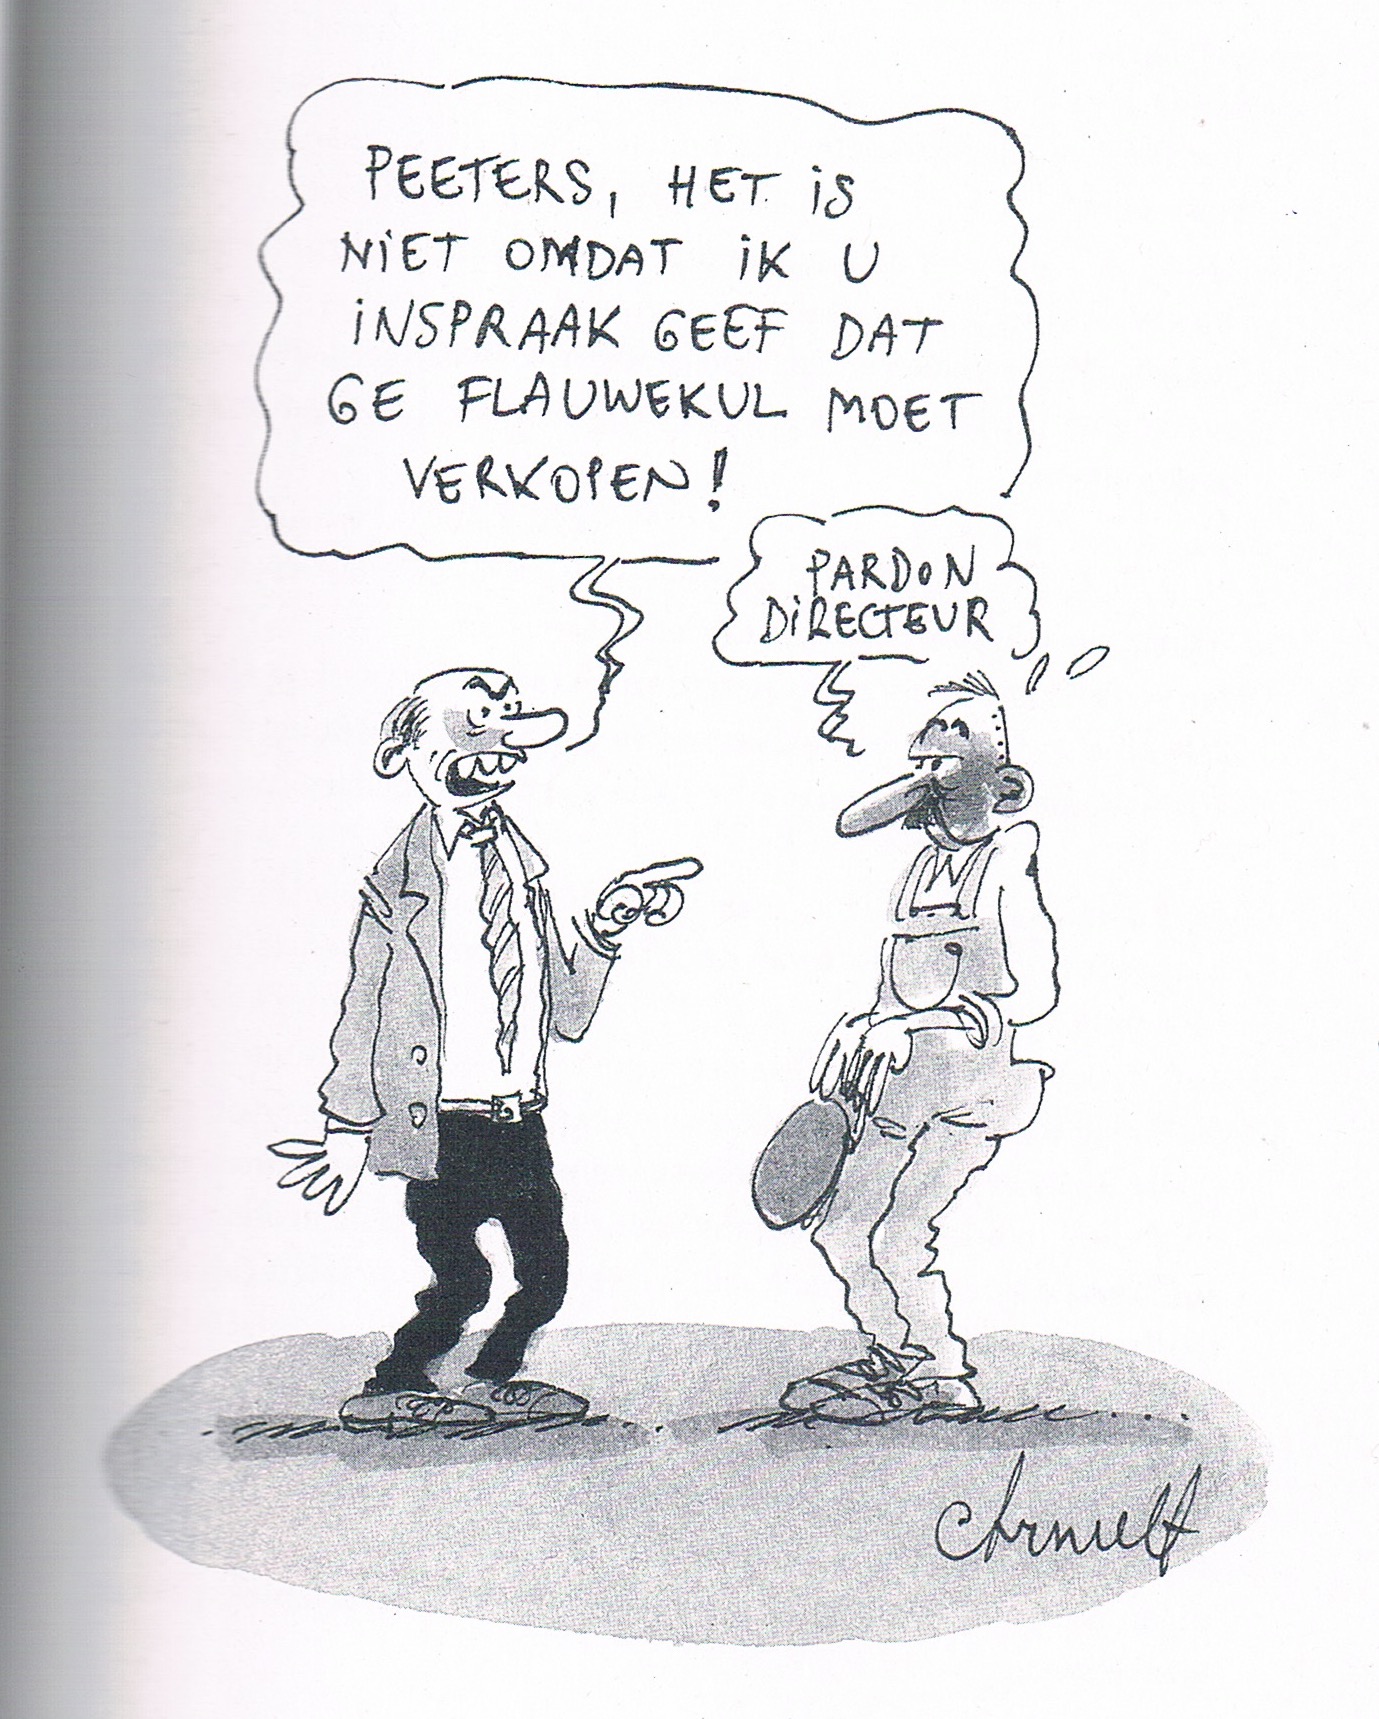 PEETERS, HET IS
NIET OMDAT IK U
INSPRAAK GEEF DAT
GE FLAUWEKUL MOET
VERKOPEN!
PARDON
DIRECTEUR